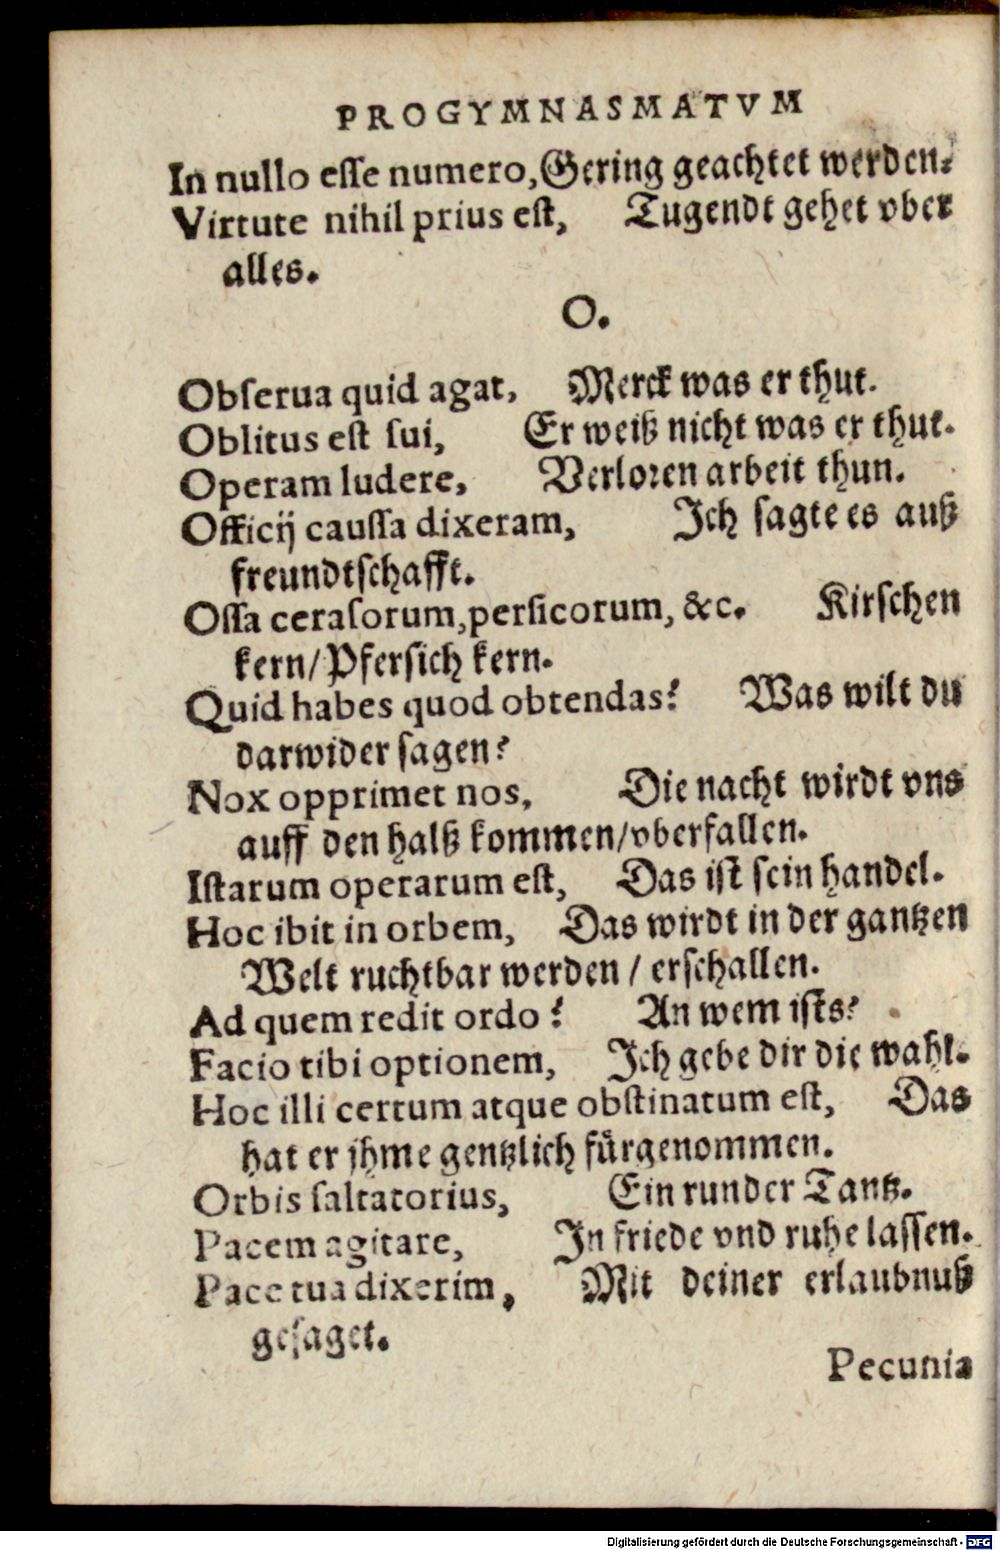 PROGYMNASMATVM
In nullo eſſe numero, Gering geachtet werden.
Virtute nihil prius eſt, Tugendt gehet vber
alles.
O.
Obſerua quid agat, Merck was er thut.
Oblitus eſt ſui, Er weiß nicht was er thut.
Operam ludere, Verloren arbeit thun.
Officij cauſſa dixeram, Ich ſagte es auß
freundtſchafft.
Oſſa ceraſorum, perſicorum, &c. Kirſchen
kern/ Pferſich kern.
Quid habes quod obtendas? Was wilt du
darwider ſagen?
Nox opprimet nos, Die nacht wirdt vns
auff den halß kommen/vberfallen.
Iſtarum operarum eſt, Das iſt ſein handel.
Hoc ibit in orbem, Das wirdt in der gantzen
Welt ruchtbar werden / erſchallen.
Ad quem redit ordo? An wem iſts?
Facio tibi optionem, Ich gebe dir die wahl.
Hoc illi certum atque obſtinatum eſt, Das
hat er jhme gentzlich fürgenommen.
Orbis ſaltatorius, Ein runder Tantz.
Pacem agitare, In friede vnd ruhe laſſen.
Pace tua dixerim, Mit deiner erlaubnuß
geſaget.
Pecunia
Digitalisierung gefördert durch die Deutsche Forschungsgemeinschaft - DFG